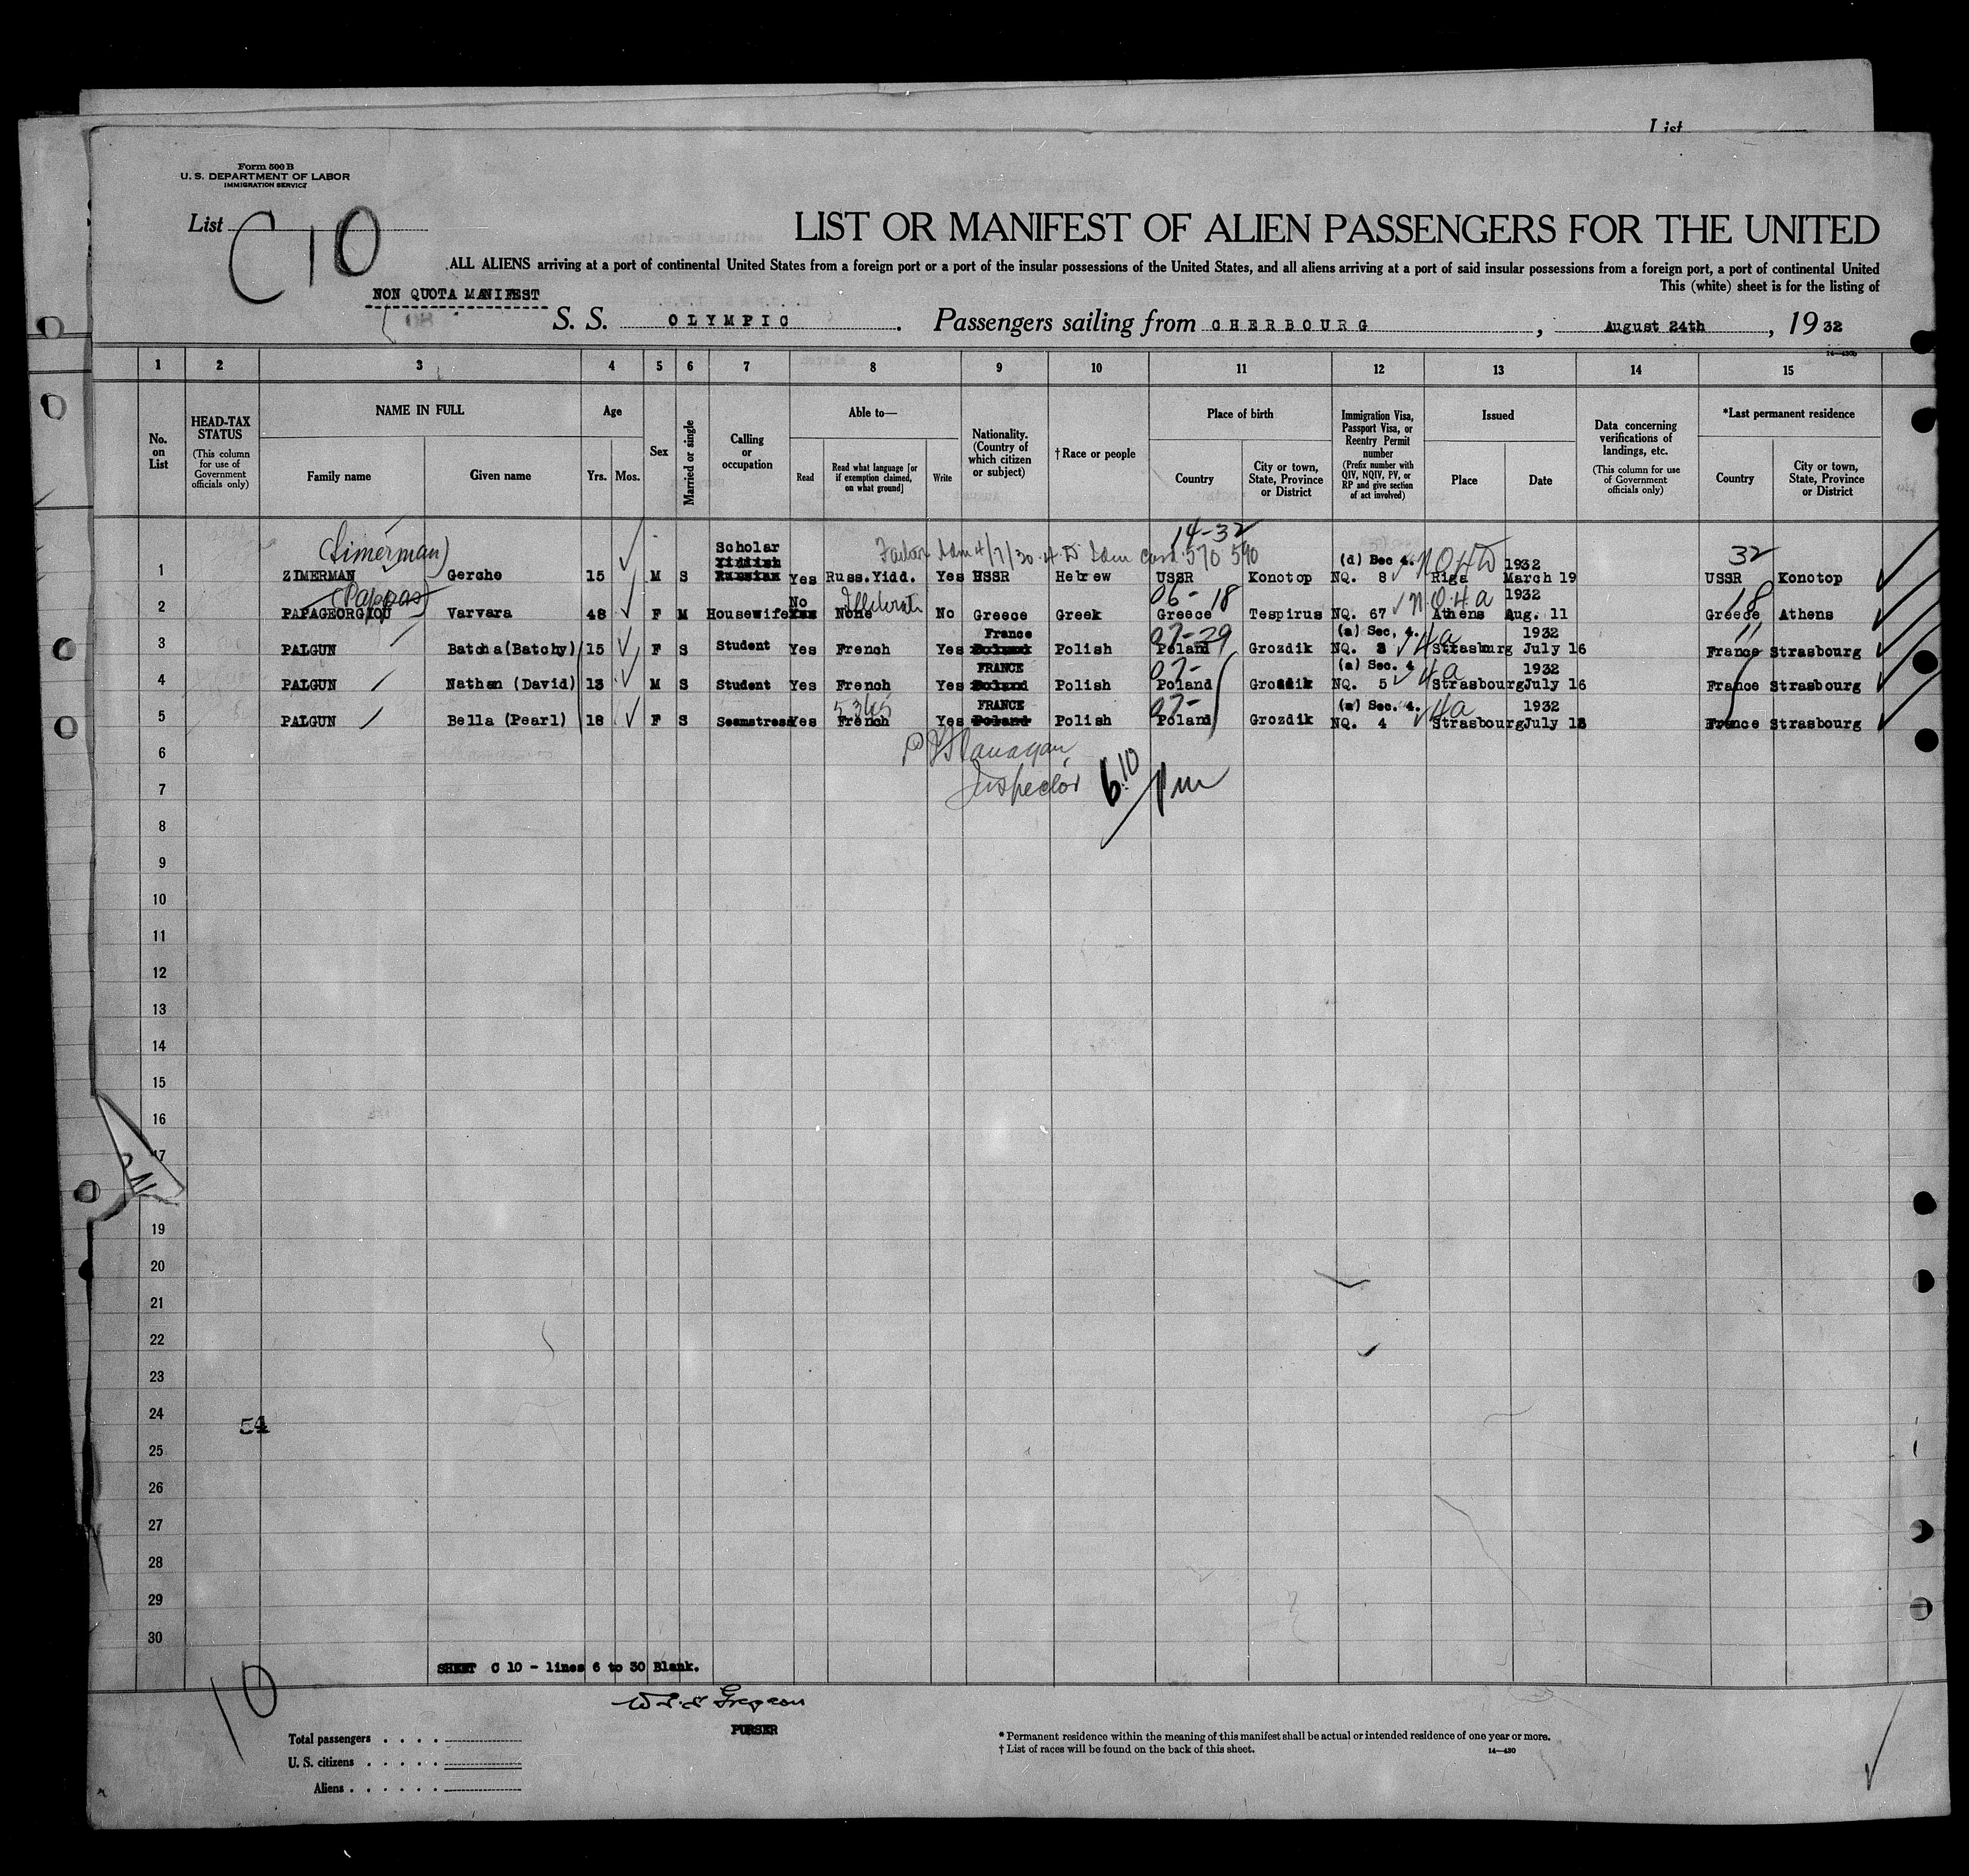 List
Form 500 B
U. S. DEPARTMENT OF LABOR
IMMIGRATION SERVICE
List C10
LIST OR MANIFEST OF ALIEN PASSENGERS FOR THE UNITED
ALL ALIENS arriving at a port of continental United States from a foreign port or a port of the insular possessions of the United States, and all aliens arriving at a port of said insular possessions from a foreign port, a port of continental United
This (white) sheet is for the listing of
NON QUOTA MANIFEST
S. S. OLYMPIC . Passengers sailing from CHERBOURG , August 24th , 19 32
1 2 3 4 5 6 7 8 9 10 11 12 13 14 15
No. on List
HEAD-TAX STATUS
(This column for use of Government officials only)
NAME IN FULL
Family name Given name
Age
Yrs. Mos.
Sex
Married or single
Calling or occupation
Able to—
Read
Read what language [or if exemption claimed, on what ground]
Write
Nationality. (Country of which citizen or subject)
†Race or people
Place of birth
Country
City or town, State, Province or District
Immigration Visa, Passport Visa, or Reentry Permit number
(Prefix number with QIV, NQIV, PV, or RP and give section of act involved)
Issued
Place Date
Data concerning verifications of landings, etc.
(This column for use of Government officials only)
*Last permanent residence
Country
City or town, State, Province or District
(Simerman) 14-32
Scholar Yiddish (d) Sec 4. 1932 32
1 ZIMERMAN Gerche 15 M S Russian Yes Russ.Yidd. Yes USSR Hebrew USSR Konotop NQ. 8 Riga March 19 USSR Konotop
(Pappas) No Illiterate 06-18 N.O.4a 1932 18
2 PAPAGEORGIOU Varvara 48 F M Housewife Yes None No Greece Greek Greece Tespirus NQ. 67 Athens Aug. 11 Greece Athens
France 07-29 (a) Sec. 4. 4a 1932 11
3 PALGUN Batcha(Batchy) 15 F S Student Yes French Yes Poland Polish Poland Grozdik NQ. 3 Strasburg July 16 France Strasbourg
FRANCE 07- (a) Sec. 4 4a 1932
4 PALGUN Nathan (David) 13 M S Student Yes French Yes Poland Polish Poland Grozdik NQ. 5 Strasbourg July 16 France Strasbourg
5345 FRANCE 07- (a) Sec. 4. 4a 1932
5 PALGUN Bella (Pearl) 18 F S Seamstress Yes French Yes Poland Polish Poland Grozdik NQ. 4 Strasbourg July 18 France Strasbourg
6 Flanagan
7 Inspector 6.10 Pm
8
9
10
11
12
13
14
15
16
17
19
20
21
22
23
24
54
25
26
27
28
29
30
SHEET C 10 - lines 6 to 30 Blank.
10
PURSER
Total passengers . . . .
U. S. citizens . . . . .
Aliens . . . . . .
* Permanent residence within the meaning of this manifest shall be actual or intended residence of one year or more.
† List of races will be found on the back of this sheet.
14—430